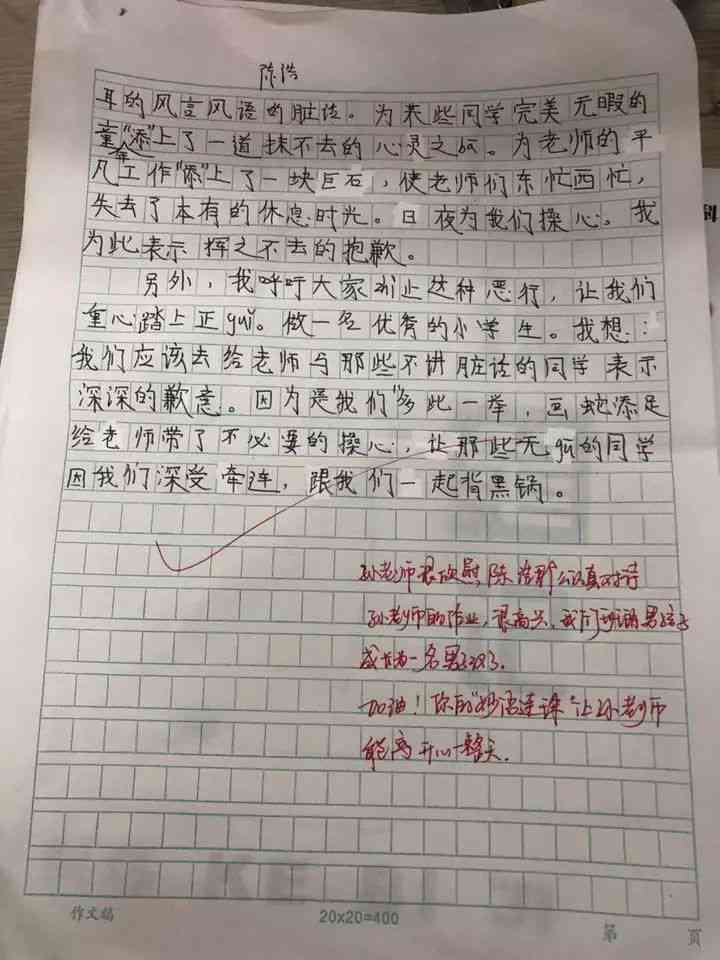 陈浩
耳的风言风语的脏话。为某些同学完美无暇的
童年"添"上了一道抹不去的心灵之
为老师的平
凡工作"添"上了一块巨石,使老师们东忙西忙,
失去了本有的休息时光。日夜为我们操心。我
为此表示挥之不去的抱歉。
另外,我呼吁大家制止这种恶行,让我们
重心踏上正guǐ。做一名优秀的小学生。我想:
我们应该去给老师与那些不讲脏话的同学表示
深深的歉意。因为是我们"多此一举,画蛇添足
给老师带了不必要的操心,让那些无gū的同学
因我们深受牵连,跟我们一起背黑锅。
孙老师很欣慰,陈浩那么认真对待
孙老师的作业,很高兴,我们班的男孩子
成长为一名男子汉了.
加油!你的"妙语连珠"让孙老师
能高开心一整天.
作文稿
20x20=400
第
页